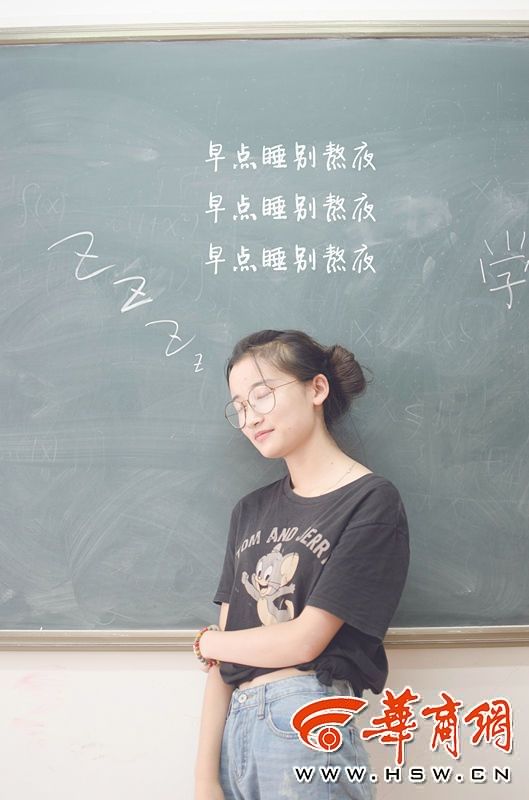 早点睡别熬夜
早点睡别熬夜
早点睡别熬夜
学
Z
Z
Z
z
TOM AND JERRY
華商網
WWW.HSW.CN